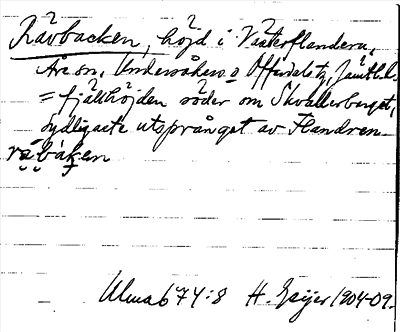 Rävbacken, höjd i Västerflandern,
Åre sn, Undersåkers o Offerdals tg, Jämtl. l.
= fjällhöjden söder om Skvallerberget,
sydligaste utsprånget av Flandren
räbaken
Ulma 674:8 H. Geijer 1904-09.